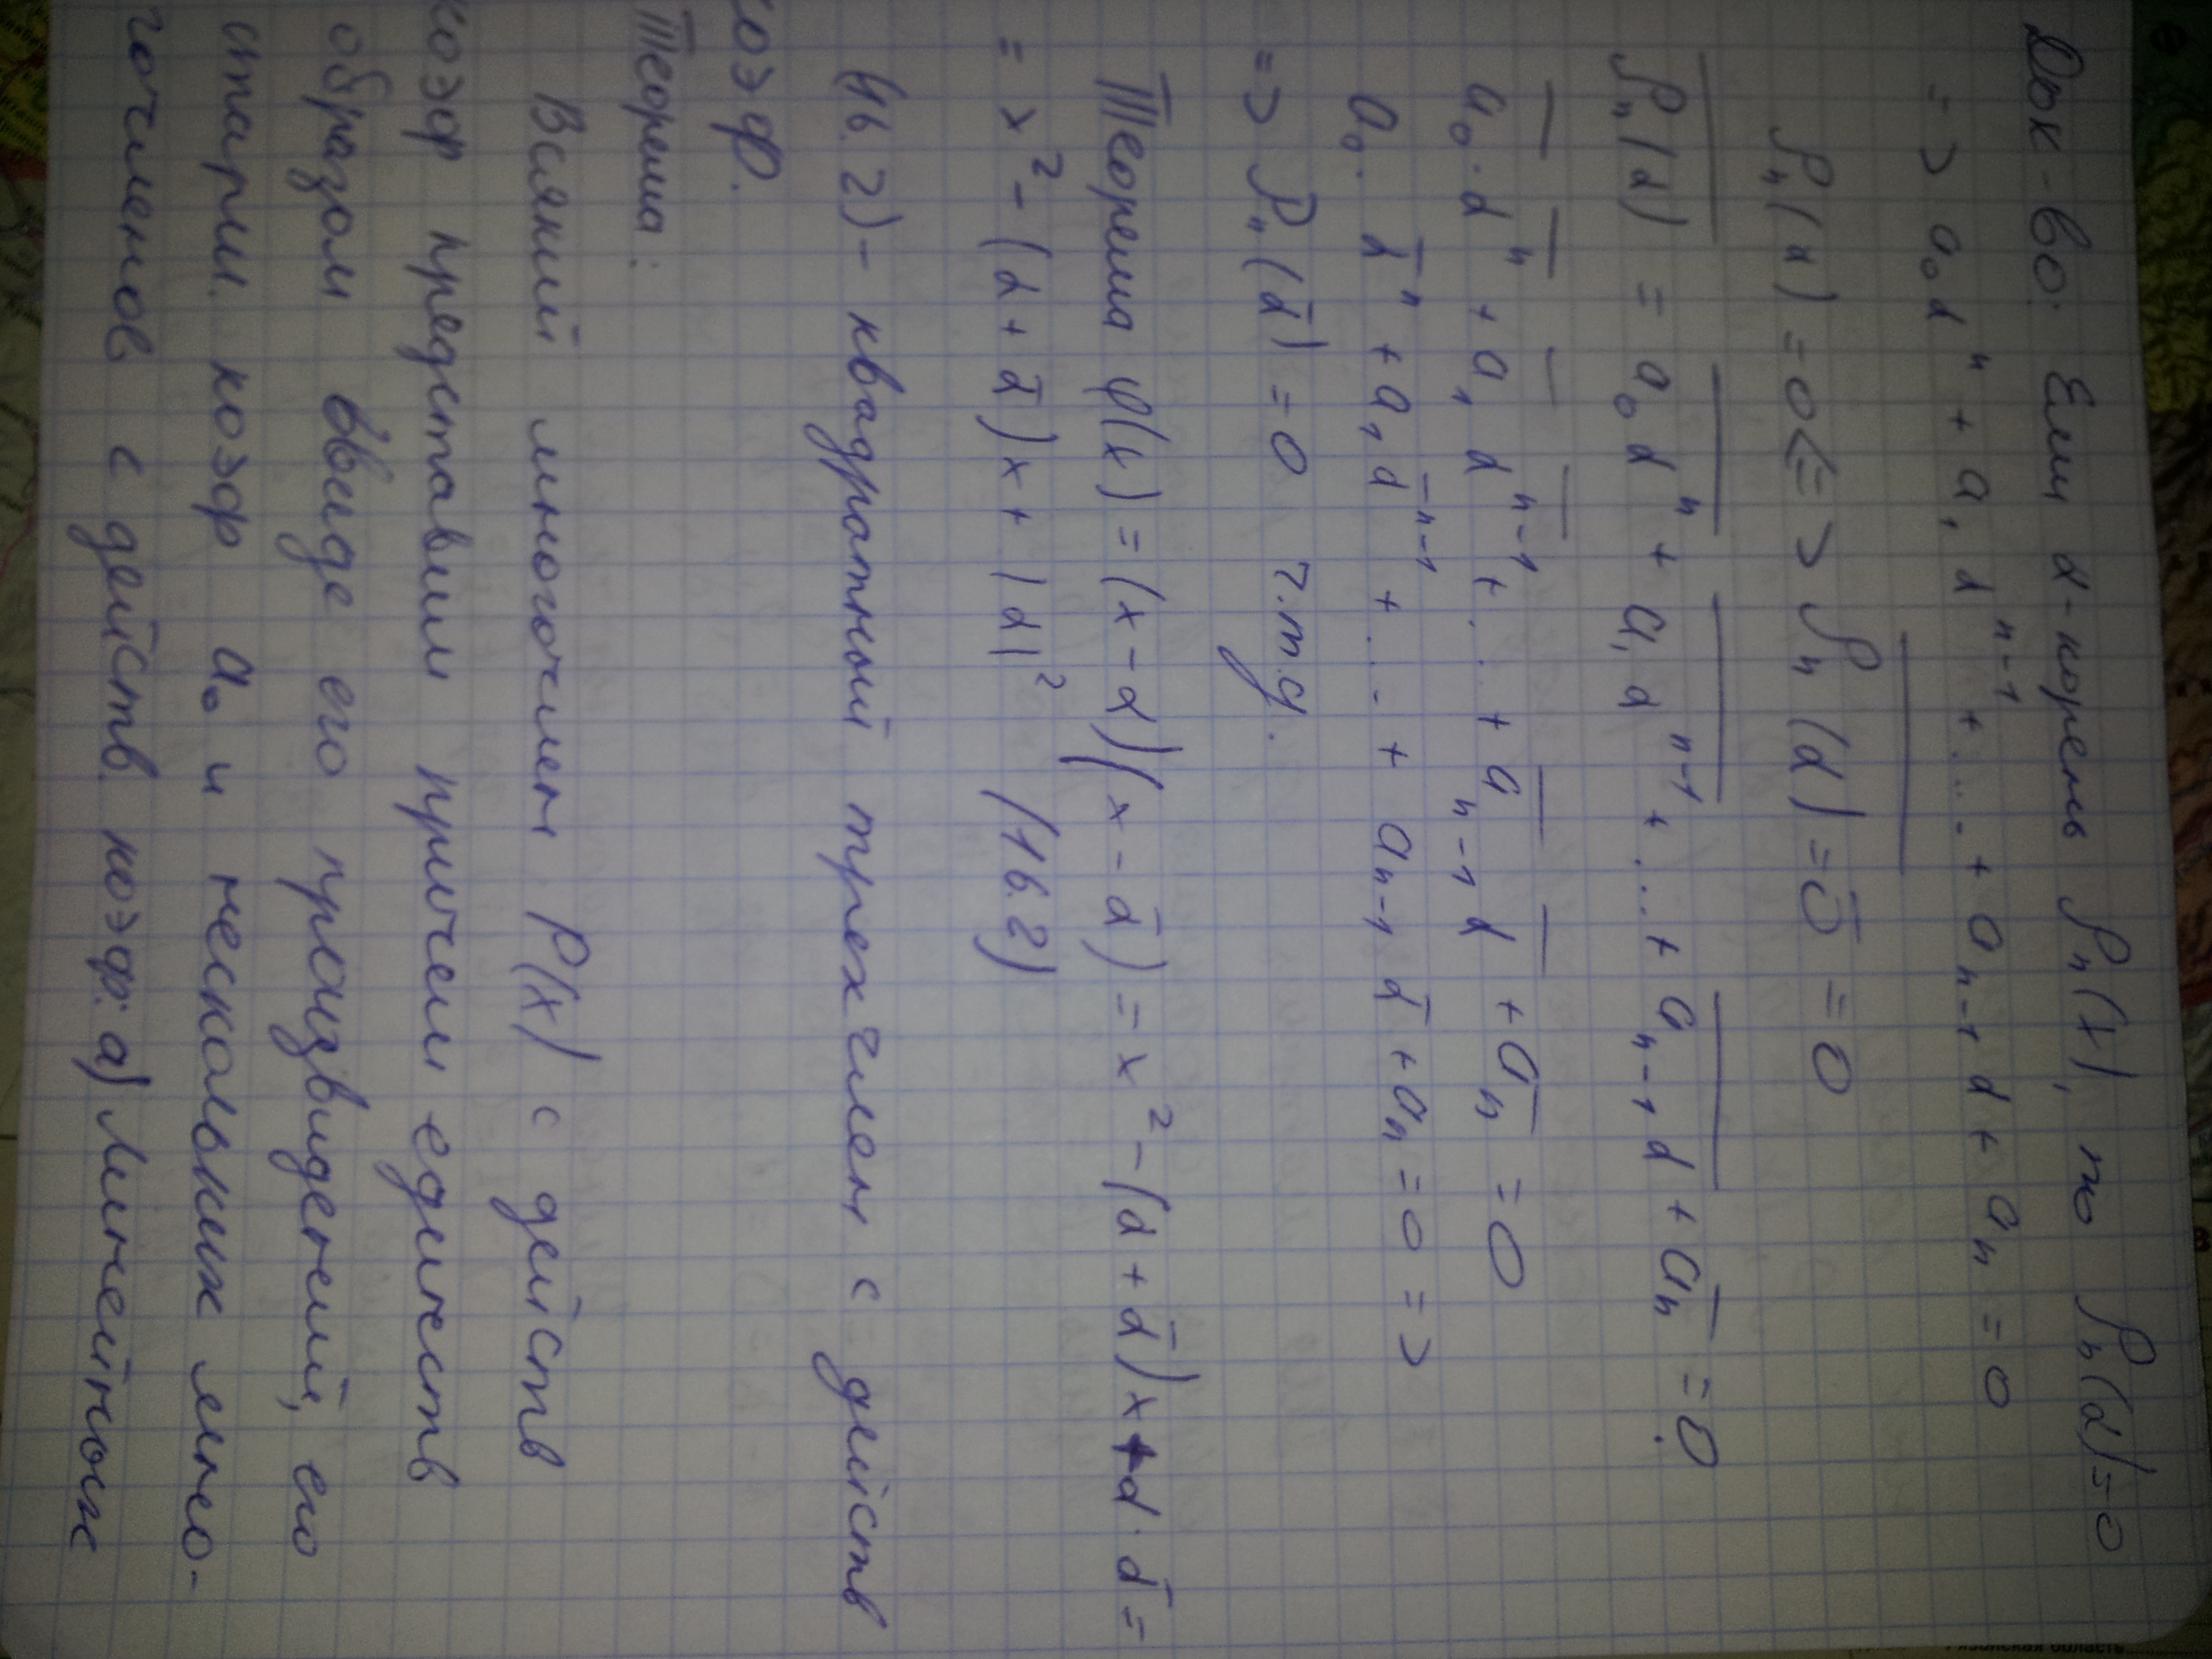 Док-во: Если α-корень Pₙ(x), то Pₙ(α)=0
=> a₀αⁿ + a₁αⁿ⁻¹ + ... + aₙ₋₁α + aₙ = 0
Pₙ(α) = 0 <=> \overline{Pₙ(α)} = \overline{0} = 0
\overline{Pₙ(α)} = \overline{a₀αⁿ} + \overline{a₁αⁿ⁻¹} + ... + \overline{aₙ₋₁α} + \overline{aₙ} = 0
\overline{a₀}·\overline{αⁿ} + \overline{a₁}\overline{αⁿ⁻¹} + ... + \overline{aₙ₋₁}\overline{α} + \overline{aₙ} = 0
a₀·\overline{α}ⁿ + a₁\overline{α}ⁿ⁻¹ + ... + aₙ₋₁\overline{α} + aₙ = 0 =>
=> Pₙ(\overline{α}) = 0 ч.т.д.
Теорема φ(x) = (x-α)(x-\overline{α}) = x² - (α+\overline{α})x + α·\overline{α} =
= x² - (α+\overline{α})x + |α|² (16.2)
(16.2) - квадратный трехчлен с действ
коэф.
Теорема:
Всякий многочлен P(x) с действ
коэф представим причем единств
образом ввиде его произвидений, его
старш. коэф a₀ и нескольких много-
гочленов с действ. коэф: а) Линейных
Рязанская область